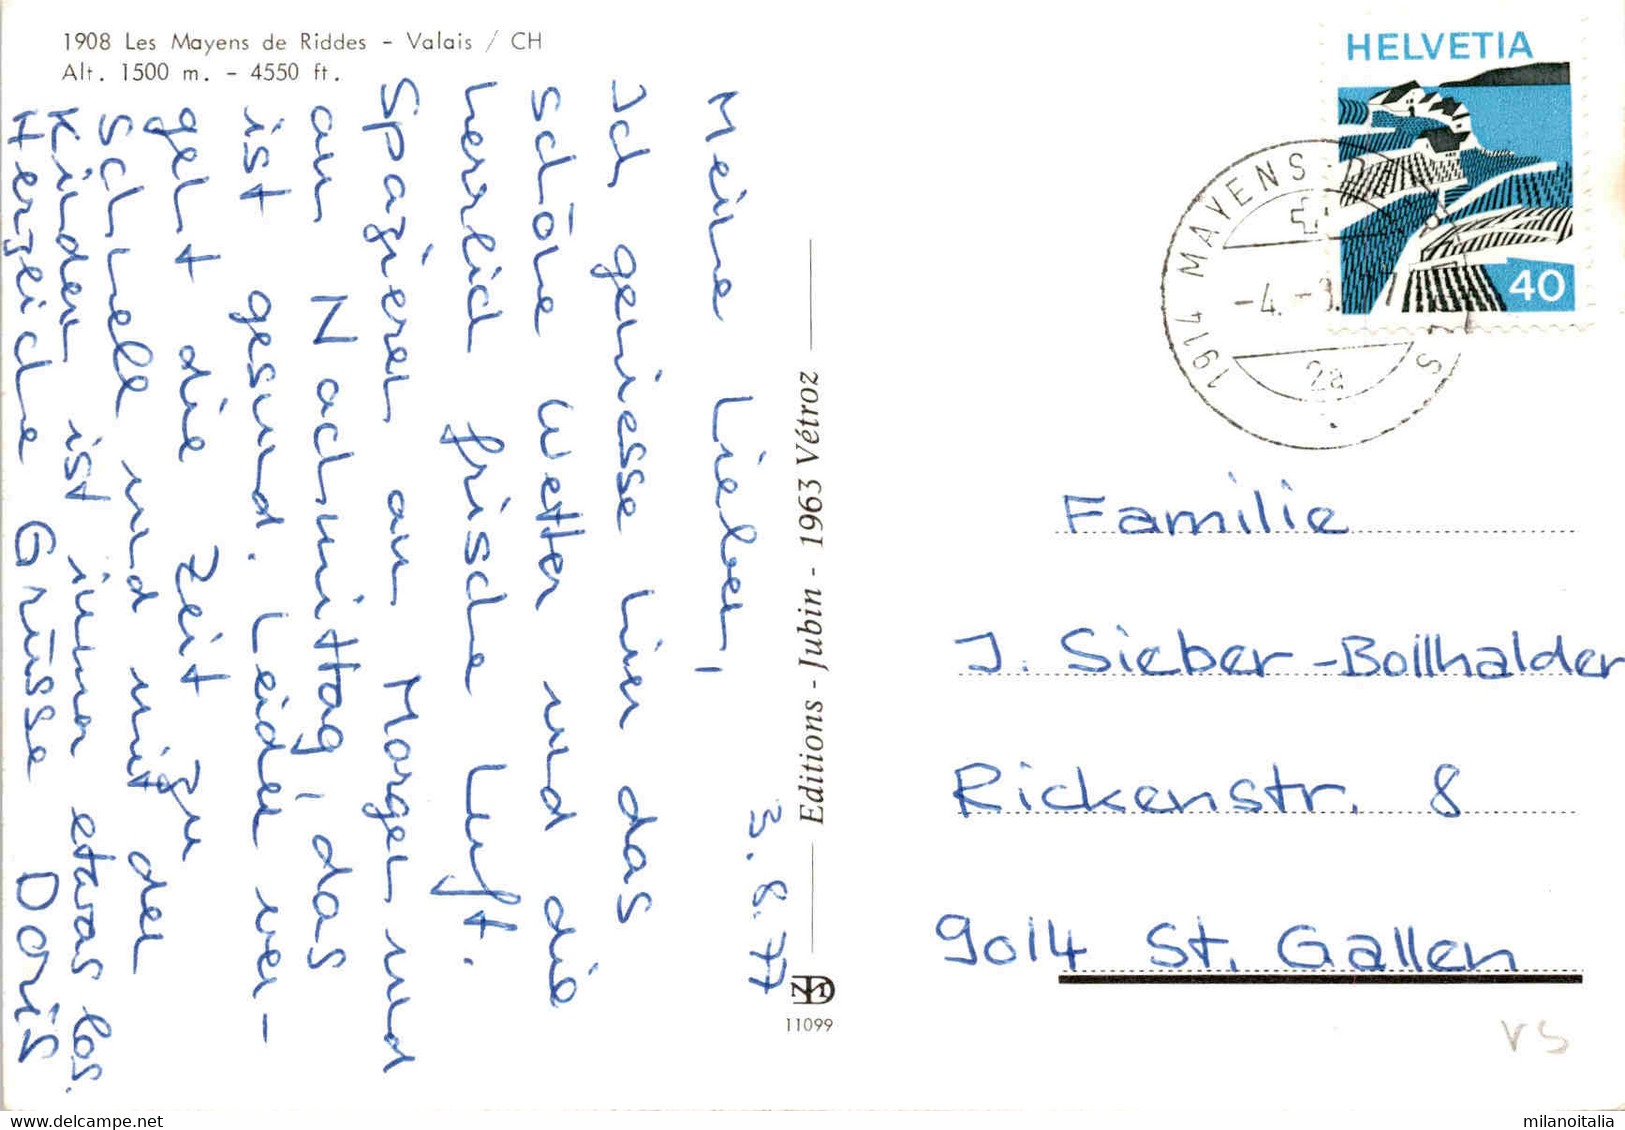 1908 Les Mayens de Riddes - Valais / CH
Alt. 1500 m. - 4550 ft.
3.8.77
Meine Lieben,
Ich geniesse hier das
schöne Wetter und die
herrlich frische Luft.
Spazieren am Morgen und
am Nachmittag, das
ist gesund. Leider ver-
geht die Zeit zu
schnell und mit den
Kindern ist immer etwas los.
Herzliche Grüsse Doris
Editions - Jubin - 1963 Vétroz
11099
HELVETIA
40
1914 MAYENS
-4.-8.
2a
Familie
J. Sieber-Bollhalder
Rickenstr. 8
9014 St. Gallen
VS
milanoitalia